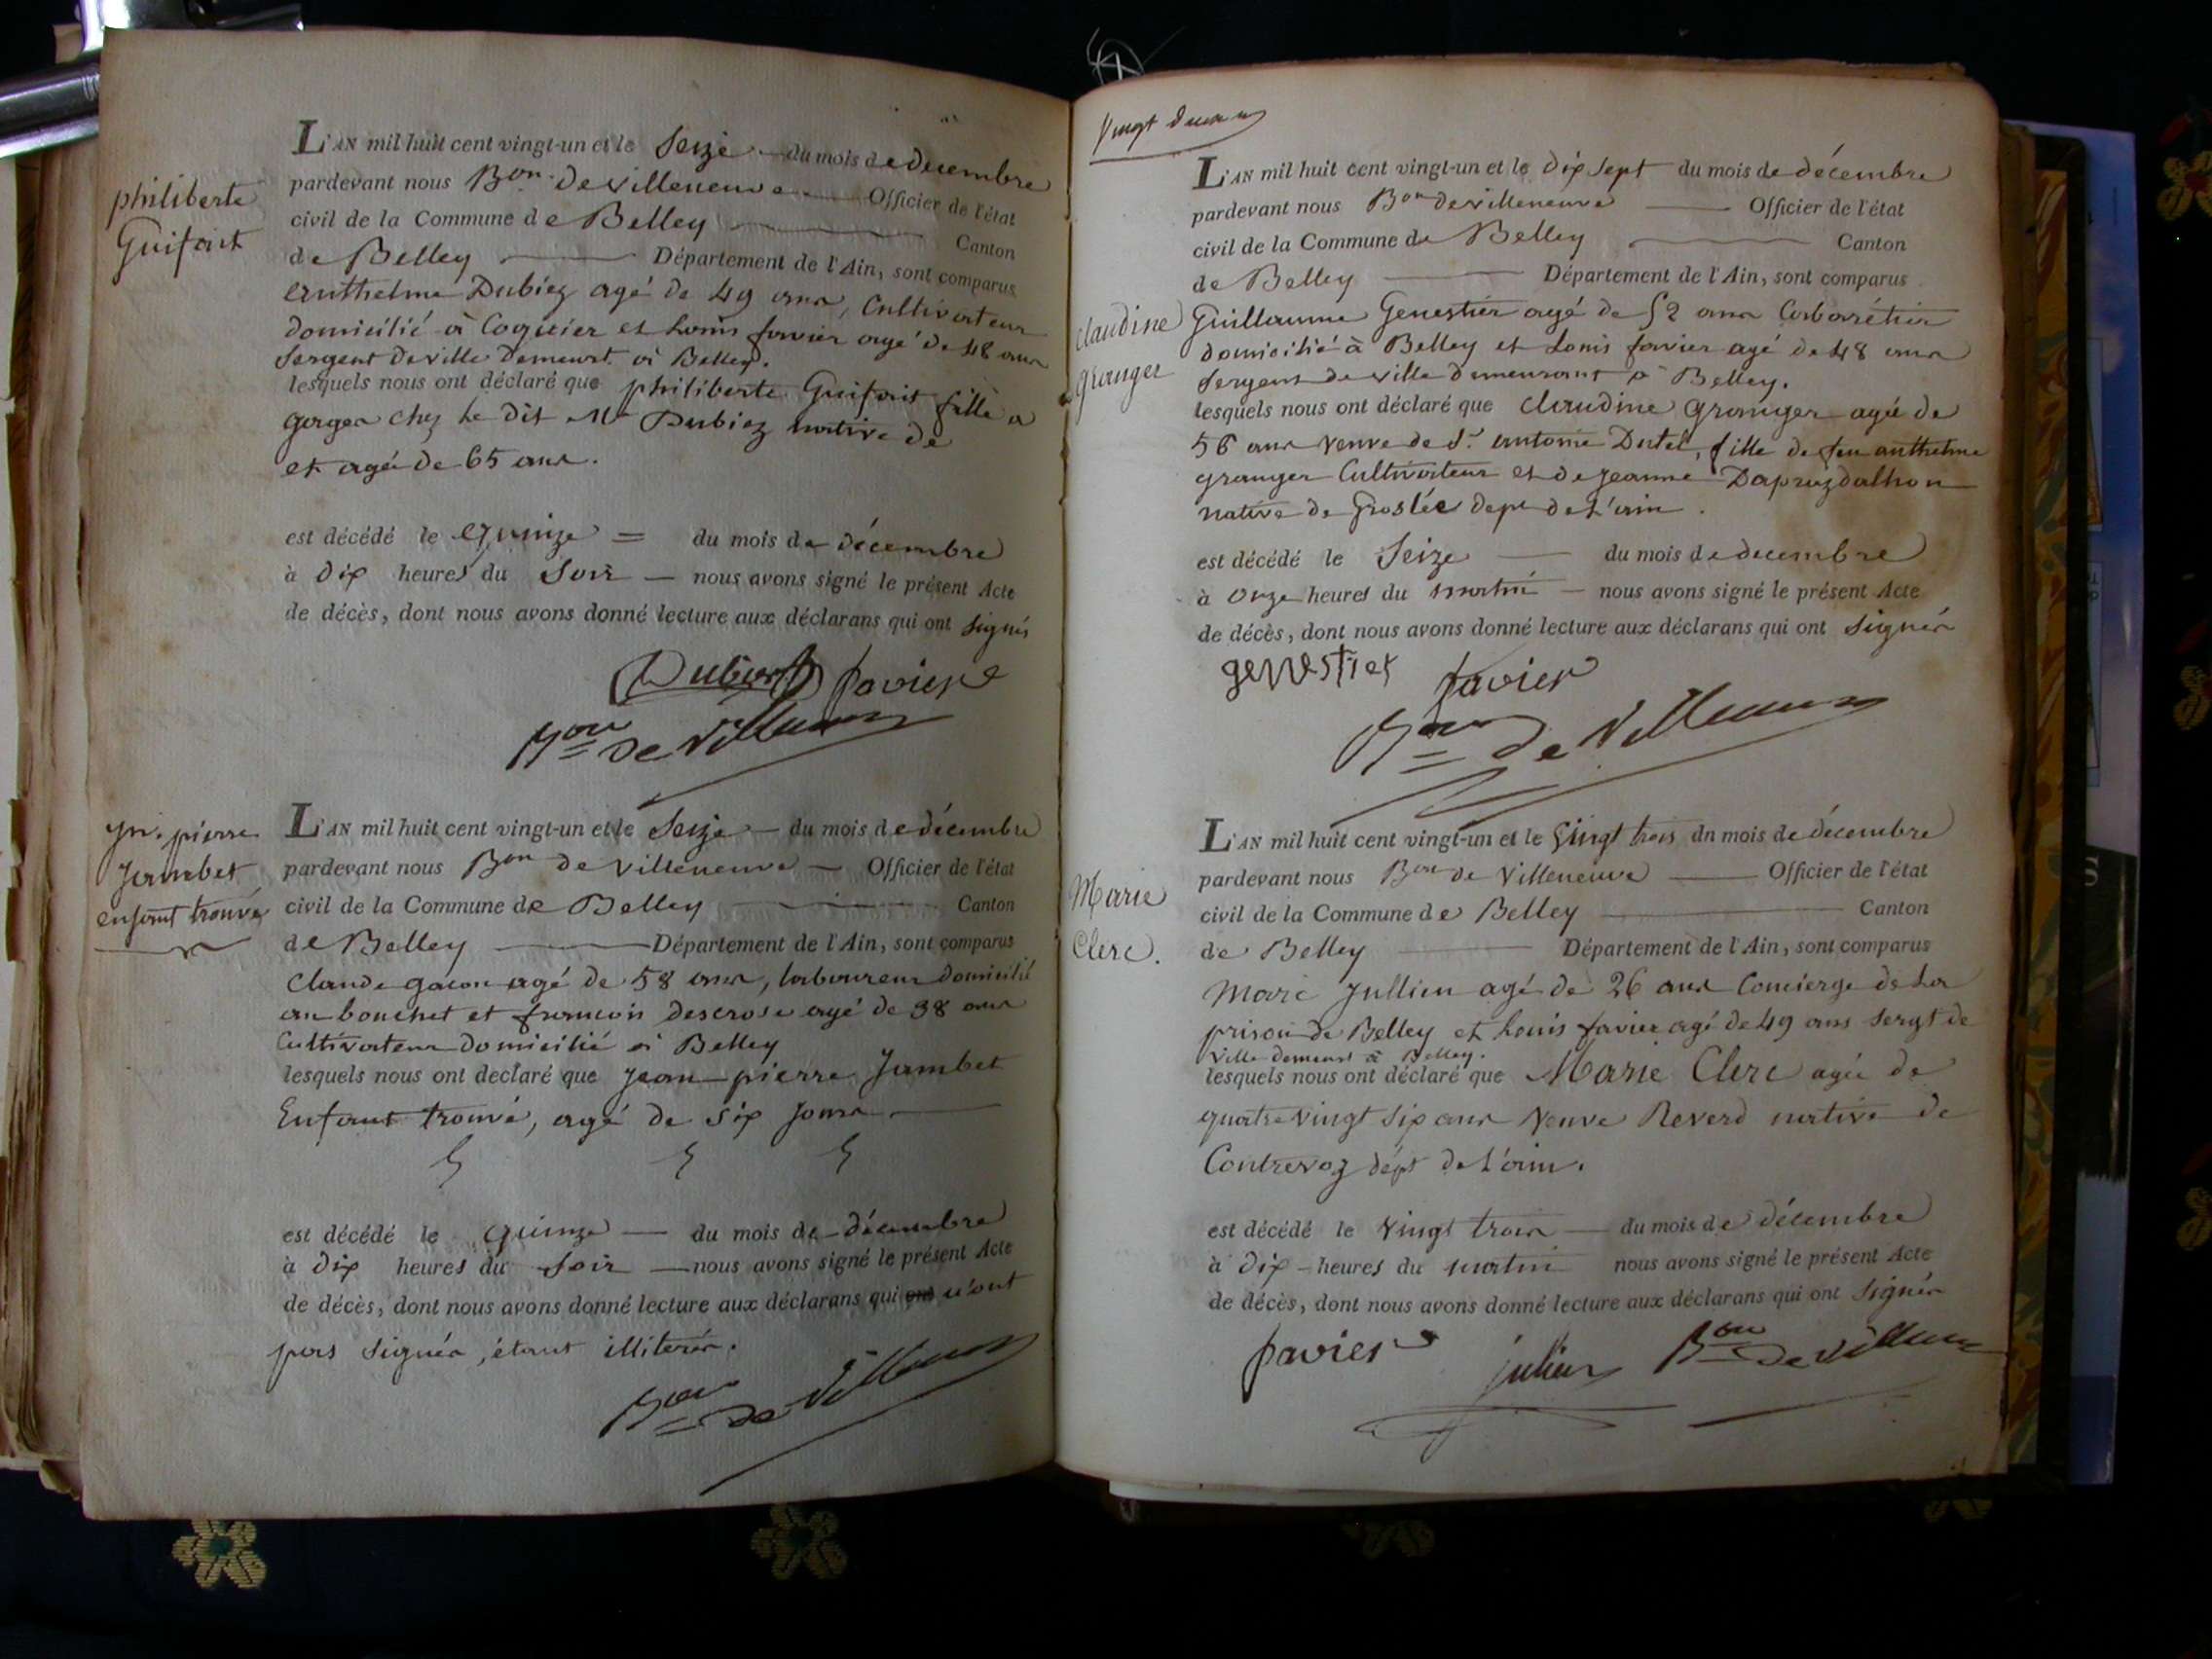 philiberte
Guifait
L'AN mil huit cent vingt-un et le Seize du mois de decembre
pardevant nous Bon. de villeneuve Officier de l'état
civil de la Commune de Belley Canton
de Belley Département de l'Ain, sont comparus
anthelme Dubiez agé de 49 ans, Cultivateur
domicilié à Coquier et Louis favier agé de 48 ans
Sergent de ville demeurt. à Belley.
lesquels nous ont déclaré que philiberte Guifait fille a
gages chez le dit Mr Dubiez native de
et agée de 65 ans.
est décédé le Quinze = du mois de décembre
à dix heures du Soir — nous avons signé le présent Acte
de décès, dont nous avons donné lecture aux déclarans qui ont signés
favier
Bon de Villeneuve
jn. pierre
Jambet
enfant trouvé
L'AN mil huit cent vingt-un et le Seize — du mois de décembre
pardevant nous Bon de villeneuve — Officier de l'état
civil de la Commune de Belley Canton
de Belley Département de l'Ain, sont comparus
Claude gacon agé de 58 ans, laboureur domicilié
au bouchet et francois descrose agé de 38 ans
Cultivateur domicilié à Belley
lesquels nous ont declaré que Jean pierre Jambet
Enfant trouvé, agé de Six Jours
est décédé le Quinze — du mois de décembre
à dix heures du Soir — nous avons signé le présent Acte
de décès, dont nous avons donné lecture aux déclarans qui ont n'ont
pas Signés, étant illiterés.
Bon de Villeneuve
Vingt
L'AN mil huit cent vingt-un et le dix sept du mois de décembre
pardevant nous Bon de villeneuve Officier de l'état
civil de la Commune de Belley Canton
de Belley Département de l'Ain, sont comparus
Claudine
granger
Guillaume Genestier agé de 52 ans Cabarétier
domicilié à Belley et Louis favier agé de 48 ans
Sergent de ville demeurant à Belley.
lesquels nous ont déclaré que Claudine granger agée de
56 ans veuve de Sr. antoine Dutel, fille de feu anthelme
granger Cultivateur et de jeanne
native de Groslée dept de L'ain.
est décédé le Seize du mois de decembre
à onze heures du matin — nous avons signé le présent Acte
de décès, dont nous avons donné lecture aux déclarans qui ont Signés
genestier favier
Bon de Villeneuve
Marie
Clerc.
L'AN mil huit cent vingt-un et le Vingt trois du mois de décembre
pardevant nous Bon de Villeneuve Officier de l'état
civil de la Commune de Belley Canton
de Belley Département de l'Ain, sont comparus
Marc Jullien agé de 26 ans Concierge de La
prison de Belley et Louis favier agé de 49 ans Sergt de
Ville demeurt à Belley.
lesquels nous ont déclaré que Marie Clerc agée de
quatre vingt Six ans Veuve Reverd native de
Contrevoz dépt de L'ain.
est décédé le Vingt trois — du mois de décembre
à Dix - heures du matin nous avons signé le présent Acte
de décès, dont nous avons donné lecture aux déclarans qui ont Signés
favier julien Bon de Villeneuve